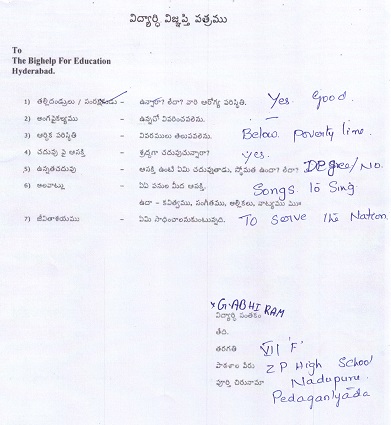 విద్యార్థి విజ్ఞప్తి పత్రము
To
The Bighelp For Education
Hyderabad.
1) తల్లిదండ్రులు / సంరక్షకుడు - ఉన్నారా? లేదా? వారి ఆరోగ్య పరిస్థితి. Yes. Good.
2) అంగవైకల్యము - ఉన్నచో వివరించవలెను.
3) ఆర్థిక పరిస్థితి - వివరములు తెలుపవలెను. Below poverty line.
4) చదువు పై ఆసక్తి - శ్రద్ధగా చదువుచున్నారా? yes.
5) ఉన్నతచదువు - ఆసక్తి ఉంటే ఏమి చదువుతాడు, స్తోమత ఉందా? లేదా? DEgree/No.
6) అలవాట్లు - ఏఏ పనుల మీద ఆసక్తి. Songs to Sing
ఉదా - కవిత్వము, సంగీతము, అల్లికలు, నాట్యము
7) జీవితాశయము - ఏమి సాధించాలనుకుంటున్నది. To serve the Nation.
G. ABHI RAM
విద్యార్థి సంతకం
తేది.
తరగతి VII 'F'
పాఠశాల పేరు Z P High School
పూర్తి చిరునామా Nadupuru
Pedagantyada